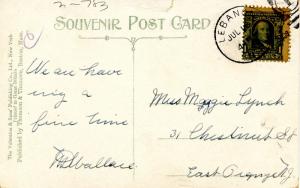 2-703
SOUVENIR POST CARD
The Valentine & Sons' Publishing Co., Ltd., New York
Printed in Great Britain
Published by Thomson & Thomson, Boston, Mass.
LEBAN
JUL
We are have
ing a
fine time
Wallace
Miss Maggie Lynch
31 Chestnut St
East Orange N.J.